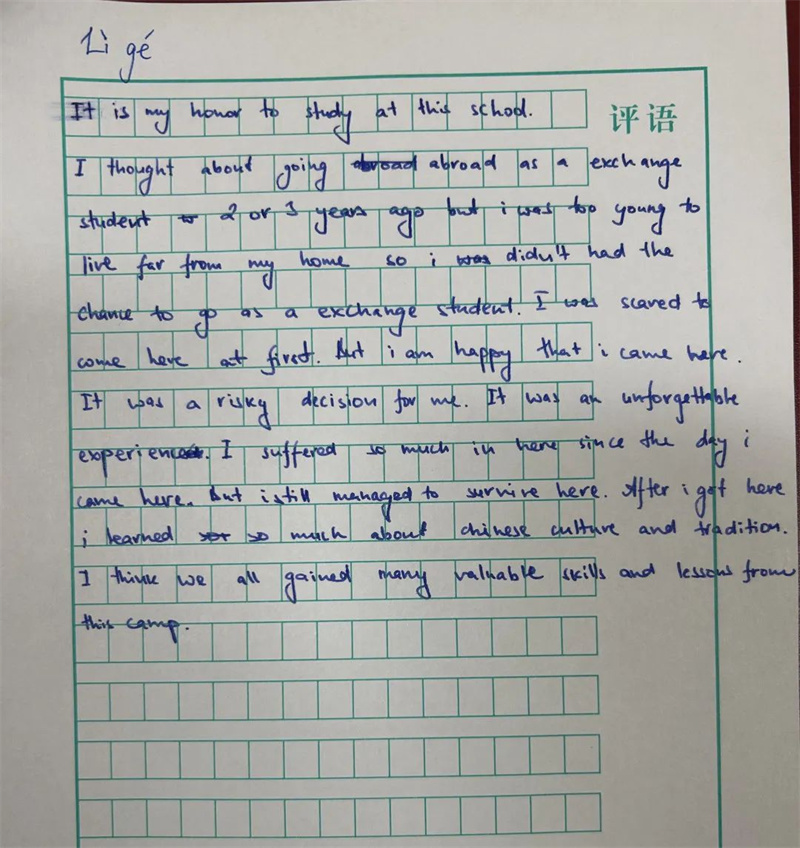 Lì gé
It is my honor to study at this school.
评语
I thought about going abroad abroad as a exchange
student 2 or 3 years ago but i was too young to
live far from my home so i was didn't had the
chance to go as a exchange student. I was scared to
come here at first. But i am happy that i came here.
It was a risky decision for me. It was an unforgettable
experience. I suffered so much in here since the day i
came here. But i still managed to survive here. After i got here
i learned so much about chinese culture and tradition.
I think we all gained many valuable skills and lessons from
this camp.